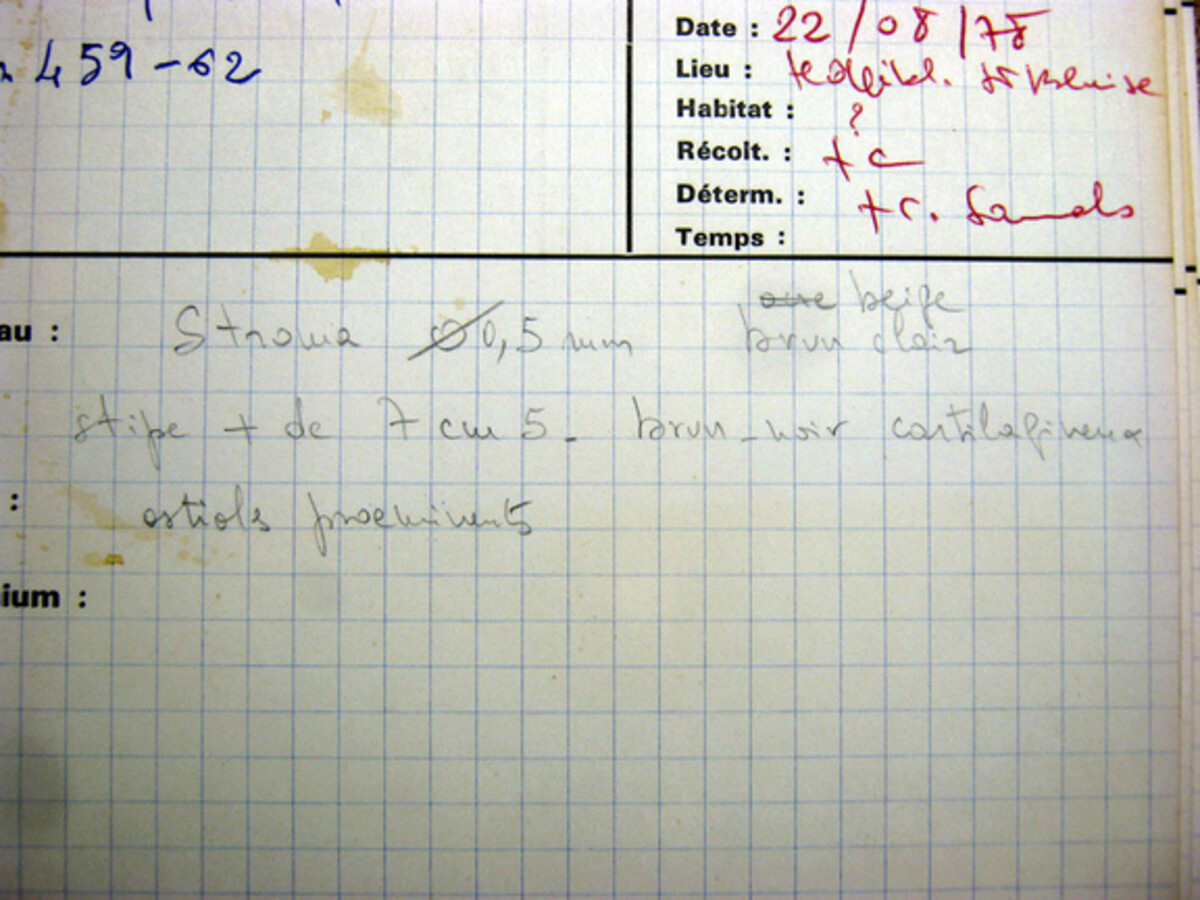 459-62
Date : 22/08/78
Lieu : St Blaise
Habitat : ?
Récolt. : + c
Déterm. : + c.
Temps :
au : Stroma Ø 0,5 mm beige
brun clair
stipe + de 7 cm 5 - brun-noir cartilagineux
: ostiols proéminents
ium :